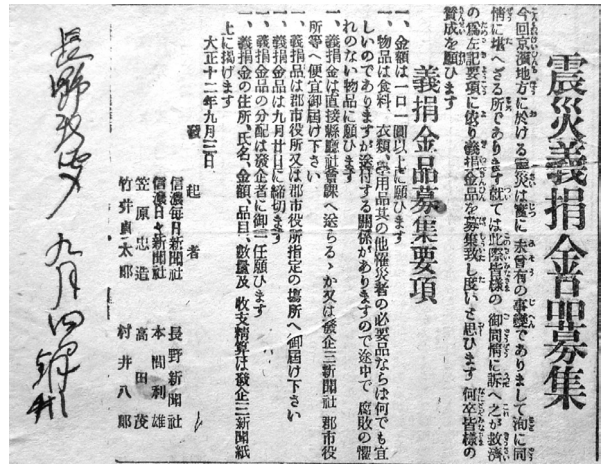 震災義捐金品募集
今回京濱地方に於ける震災は實に未曾有の事變でありまして洵に同
情に堪へざる所であります就ては此際皆樣の御同情に訴へ之が救濟
の爲左記要項に依り義捐金品を募集致し度いと思ひます何卒皆樣の
賛成を願ひます
義捐金品募集要項
一、金額は一口一圓以上に願ひます
一、物品は食料、衣類、日用品其の他罹災者の必要品ならば何でも宜
しいのでありますが送付する關係がありますので途中で腐敗の懼
れのない物品に願ひます
一、義捐金は直接縣廳社會課へ送らるゝか又は發企三新聞社郡市役
所等へ便宜御屆け下さい
一、義捐品は郡市役所又は郡市役所指定の塲所へ御屆け下さい
一、義捐金品は九月廿日に締切ます
一、義捐金品の分配は發企者に御一任願ひます
一、義捐金の住所、氏名、金額、品目、數量及收支精算は發企三新聞紙
上に掲げます
大正十二年九月三日
發起者
信濃毎日新聞社 長野新聞社
信濃日々新聞社 本間利雄
笠原忠造 高田茂
竹井貞太郎 村井八郎
長野 九月四